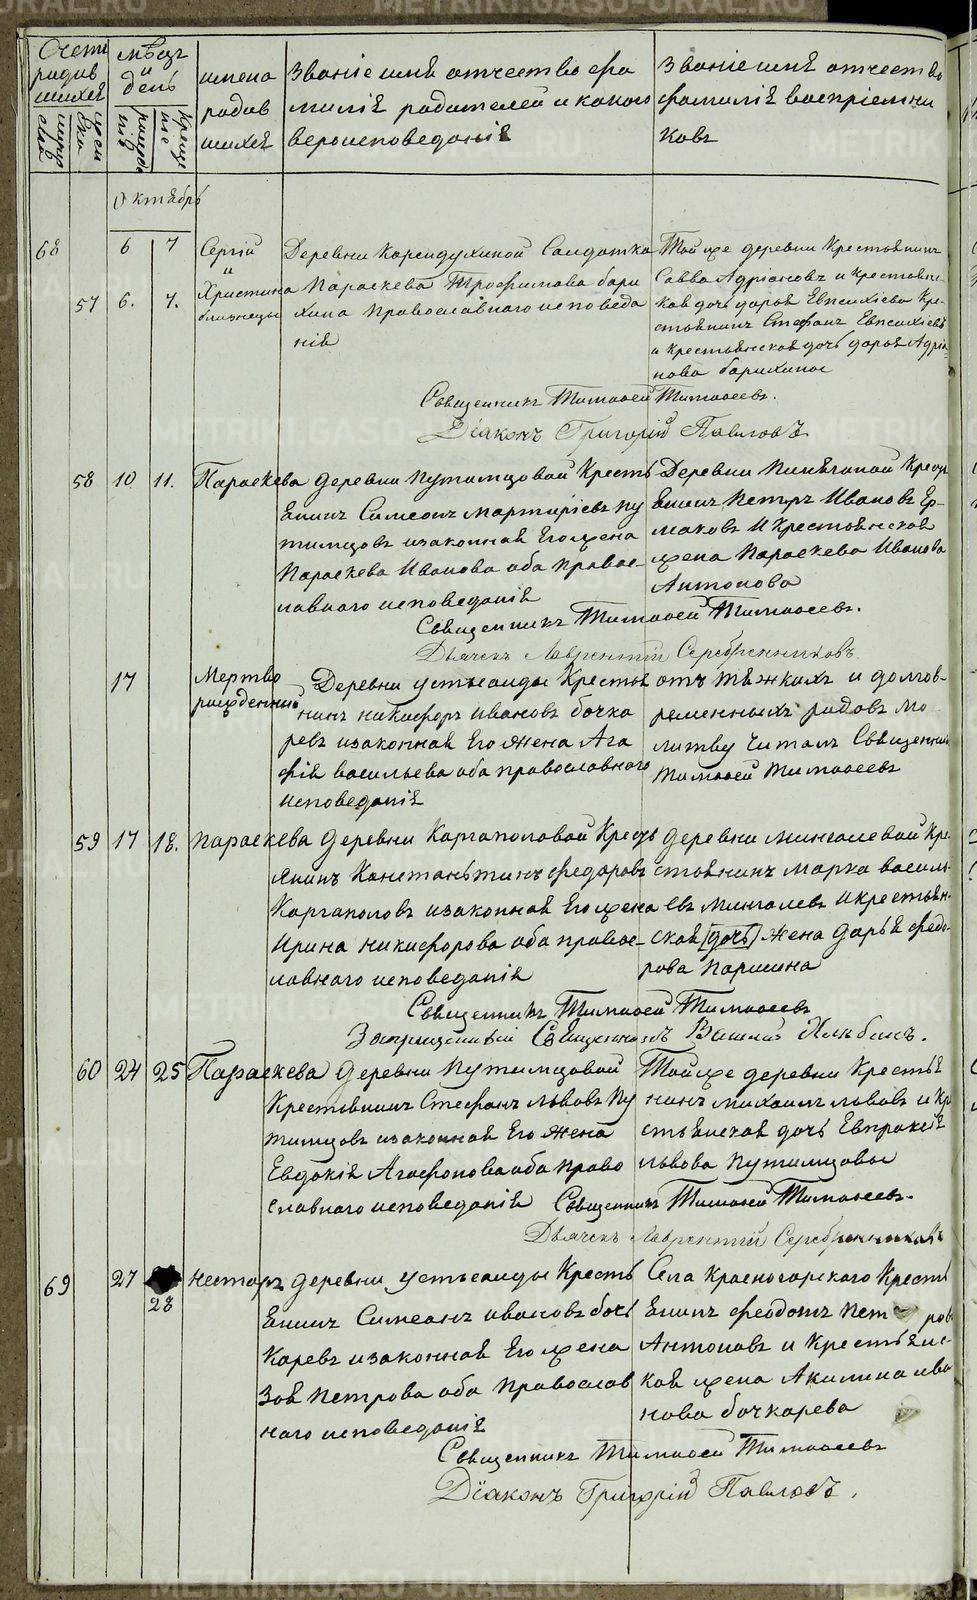 Счетъ родившихся
мужеска
женска
мѣсяцъ и день
рожденія
крещеніе
имена родившихся
Званіе имя отчество фамилія родителей и какого вероисповеданія
Званіе имя отчество фамилія воспріемниковъ
Октябрь
68 6 7 Сергій и
57 6. 7. Христина близнецы
Деревни Солдатка
Параскева Трофимова бари
хина Православнаго исповеда
нія
Той же деревни Крестьянинъ
Савва Адріановъ и крестьянс
кая дочь дарья Евпсихіева Кре
стьянинъ Стефанъ Евпсихіевъ
и крестьянская дочь дарья Адріа
нова барихины
Священникъ Тимоѳей Тимоѳеевъ.
Діаконъ Григорій Павловъ
58 10 11. Параскева
деревни Путимцовой Кресть
янинъ Симеонъ Мартиріевъ Пу
тимцовъ изаконная Его жена
Параскева Иванова оба Правос
лавнаго исповеданія
Деревни Пинягиной Кресть
янинъ Петръ Ивановъ Ер
маковъ И Крестьянская
жена Параскева Иванова
Антонова
Священникъ Тимоѳей Тимоѳеевъ.
Дьячекъ Лаврентій Серебренниковъ
17 Мертво
рожденный
Деревни устьсаиды Кресть
нинъ никифоръ ивановъ бочка
ревъ изаконная Его жена Ага
фія васильева оба православнаго
исповеданія
отъ тяжкихъ и долгов
ременныхъ родовъ мо
литву Читалъ Священник
Тимоѳей Тимоѳеевъ
59 17 18. параскева
деревни Каргаполовой Кресть
янинъ Констаньтинъ федоровъ
Каргаполовъ изаконная Его жена
Ирина никифорова оба правос
лавнаго исповеданія
деревни мингалевой Кре
стьянинъ марко василь
евъ Мингалевъ Икрестьян
ская [дочь] жена дарья федо
рова паршина
Священникъ Тимоѳей Тимоѳеевъ
Запрещенный Священникъ
60 24 25 Параскева
деревни Путимцовой
Крестьянинъ Стефанъ львовъ Пу
тимцовъ изаконная Его жена
Евдокія Агафонова оба право
славнаго исповеданія
Той же деревни Кресть
нинъ михаилъ львовъ и Кр
стьянская дочь Евпраксія
львова Путимцовы
Священникъ Тимоѳей Тимоѳеевъ.
Дьячекъ Лаврентій Серебренниковъ
69 27 28 несторъ
деревни устьсаиды Кресть
янинъ Симеонъ ивановъ боч
Каревъ изаконная Его жена
Зоя Петрова оба Православ
наго исповеданія
Села Красногорскаго Кресть
янинъ феодотъ Пет ровъ
Антоновъ и Крестьянс
кая жена Акилина ива
нова бочкарева
Священникъ Тимоѳей Тимоѳеевъ
Діаконъ Григорій Павловъ.
METRIKI.GASO-URAL.RU